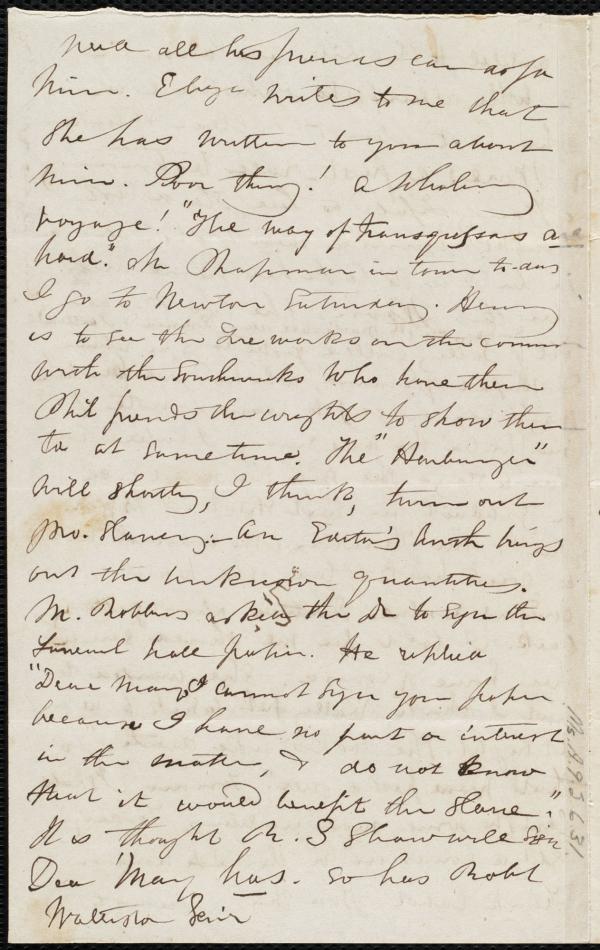 need all his friends can do for
him. Eliza writes to me that
she has written to you about
him. Poor thing! a whaling
voyage! "The way of transgressors a
hard." Mr Chapman in town to-day
I go to Newton Saturday. Henry
is to see the Fire works on the common
with the Southwicks who have them
Phil friends the wrights to show them
to at same time. The "Harbinger"
will shortly, I think, turn out
pro. Slavery. An Editor's berth brings
out the unknown quantities.
M. Robbins asked the Dr to sign the
Funeral hall paper. He replied
"Dear Mary, I cannot sign your paper
because I have no part or interest
in the matter, & do not know
that it would benefit the Slave."
It is thought R. G Shaw will sign
Dea May has. So has Robt
Waterston Senr
Ms.A.9.2.